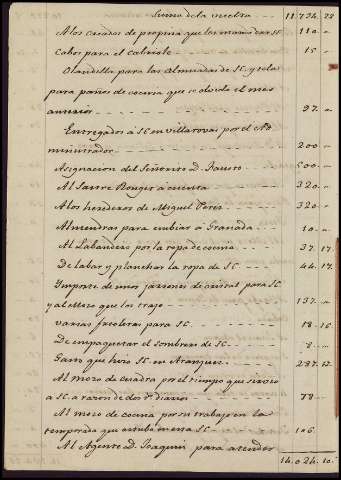 Suma de la vuelta - - - 11.734. 22
A los criados de propina que les mandó dar SE 110
Cabos para el cabriolé - - - 15
Olandilla para las almuadas de SE y tela
para paños de cocina que se olvidó el mes
anterior - - - 97.
Entregados a SE en Villatovas por el Ad
ministrador - - - 200
Asignacion del Señorito D. - - - 500
Al Sastre a cuenta - - - 320
A los herederos de Miguel Peres - - - 320
Almendras para embiar a Granada - - - 10
Al Labandero por la ropa de cocina - - - 37. 17.
De labar y planchar la ropa de SE - - - 44. 17.
Importe de unos jarrones de cristal para SE
y al mozo que los trajo - - - 137.
varias frioleras para SE - - - 18. 16.
De empaquetar el sombrero de SE - - - 8
Gasto que hizo SE en Aranjuez - - - 287. 12.
Al mozo de cuadra por el tiempo que sirvió
a SE a razon de dos rs diarios - - - 78
Al mozo de cocina por su trabajo en la
temporada que estubo en esta SE - - - 106
Al Agente D. Joaquin para atender
14.024. 10.